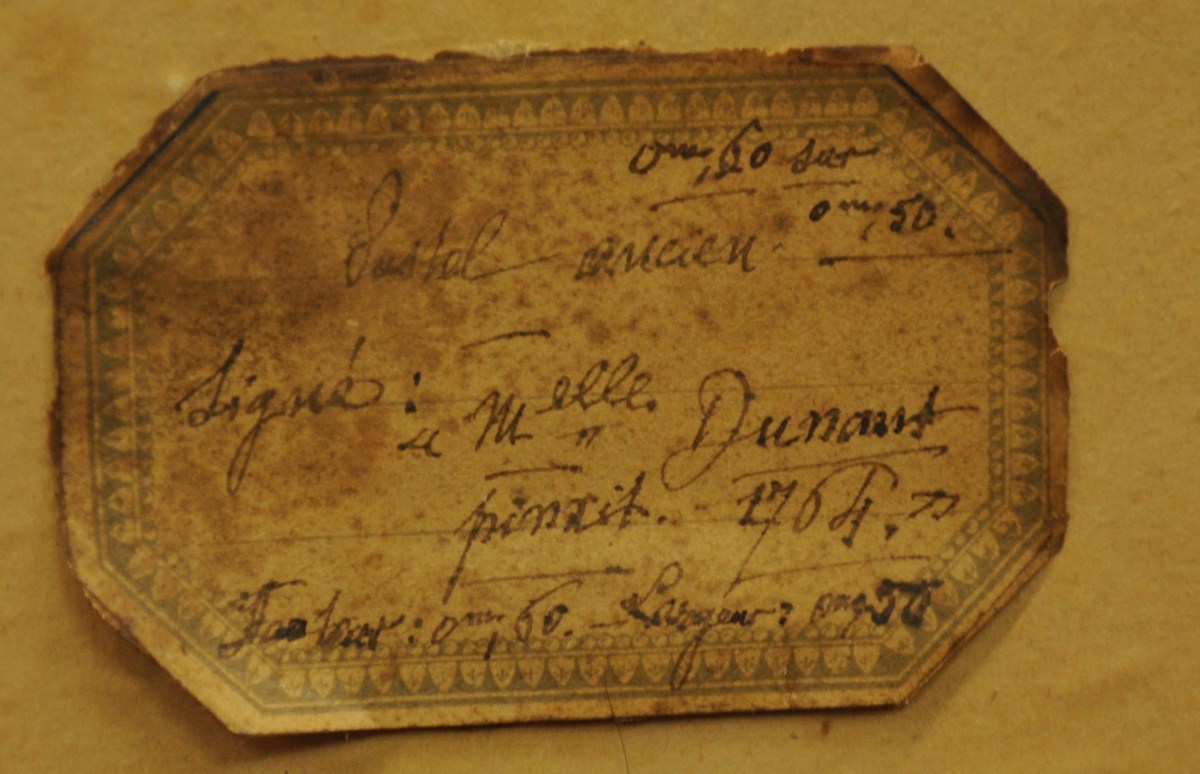 0m,60 sur
0m,50.
Pastel ancien.
Signé : « Melle. Dunant
pinxit. 1764. »
Hauteur : 0m,60. Largeur : 0m,50